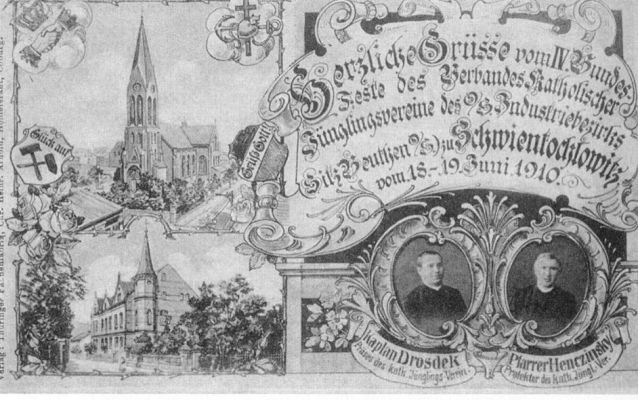 Herzliche Grüsse vom IV Bundes-
Feste des Verbandes Katholischer
Jünglingsvereine des O/S Industriebezirks
Sitz Beuthen O/S zu Schwientochlowitz
vom 18-19. Juni 1910.
Glück auf!
Grüß Gott!
Kaplan Drosdek
Präses des kath. Jünglings-Verein.
Pfarrer Henczinsky
Protektor des Kath. Jüngl. Ver.
Verlag: Thüringer